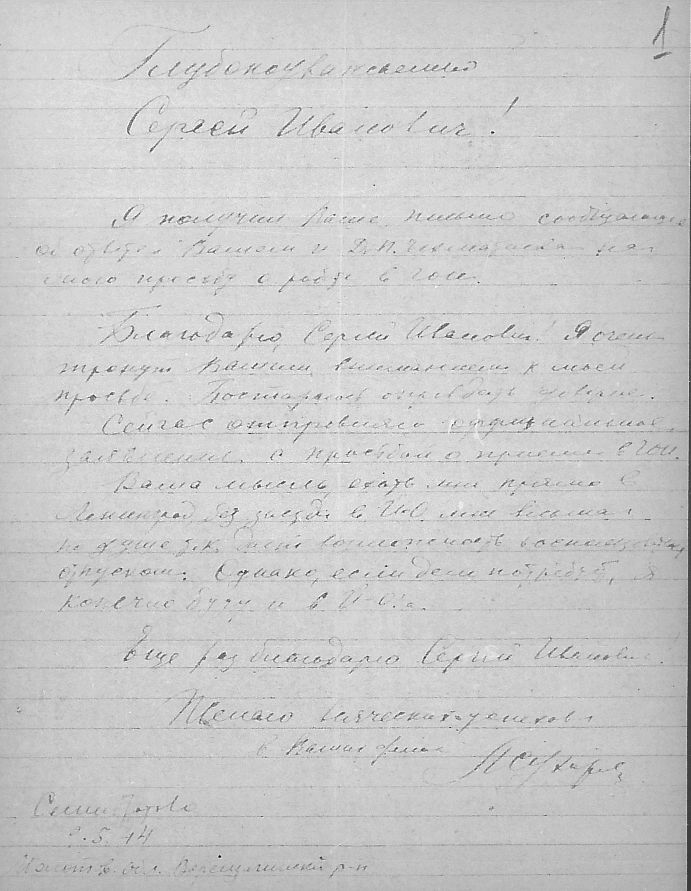 1
Глубокоуважаемый
Сергей Иванович!
Я получил Ваше письмо сообщающее
об ответе Вашем и Д.П. на
мою просьбу о работе в ГОИ.
Благодарю, Сергей Иванович! Я очень
тронут Вашим вниманием к моей
просьбе. Постараюсь оправдать доверие.
Сейчас отправляю официальное
заявление с просьбой о приеме в ГОИ.
Ваша мысль ехать мне прямо в
Ленинград без заезда в Й-О. мне весьма
по душе т.к. дает возможность воспользоваться
отпуском. Однако, если дело потребует, я
конечно буду и в Й-О.
Еще раз благодарю Сергей Иванович!
Желаю всяческих успехов
в Ваших делах
5.44
обл. Верещагинский р-н